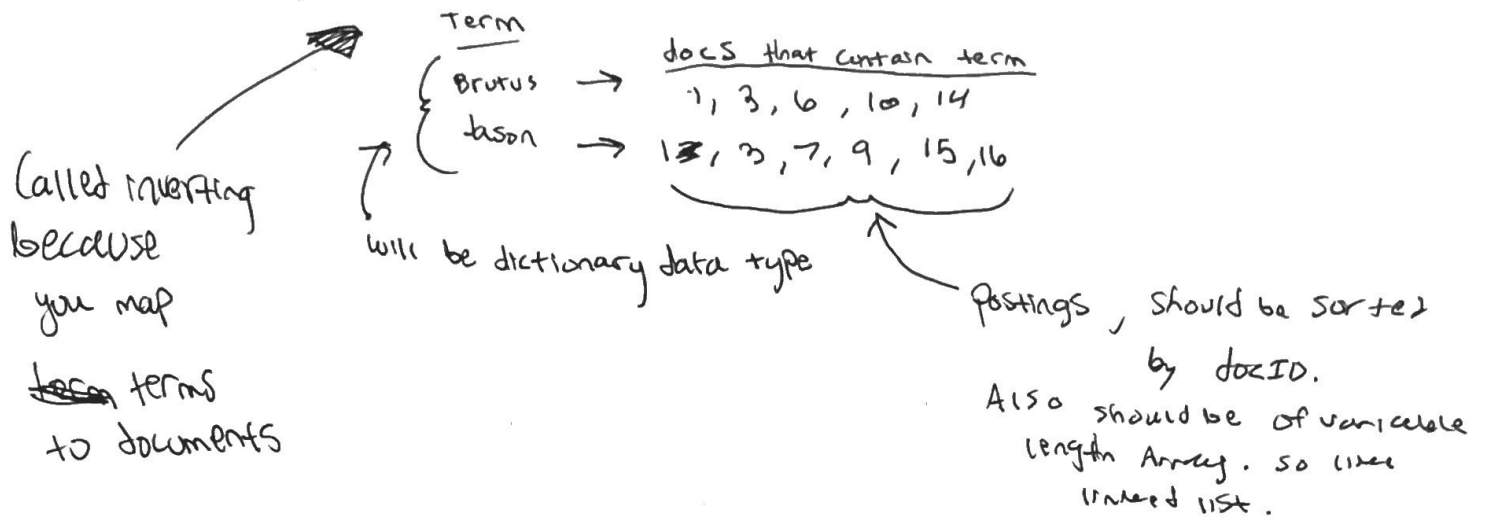 Term
docs that contain term
Brutus → 1, 3, 6, 10, 14
Jason → 1, 3, 7, 9, 15, 16
Called inverting
because
you map
terms
to documents
will be dictionary data type
Postings, should be sorted
by docID.
Also should be of variable
length Array. so like
linked list.